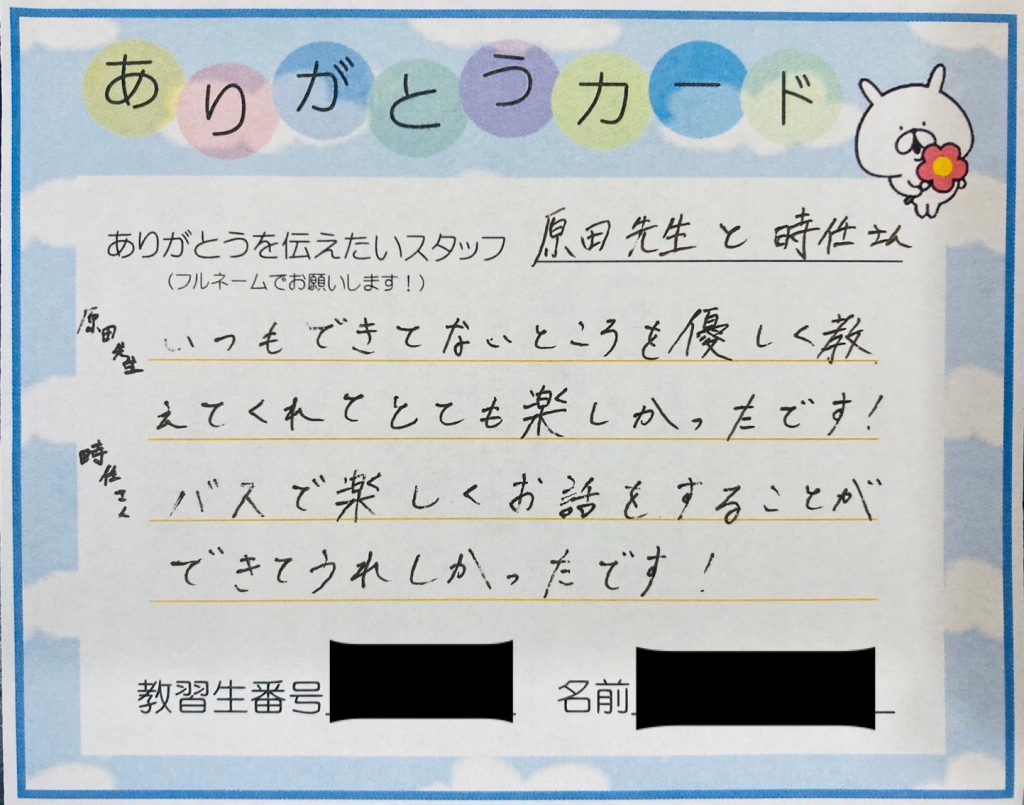 ありがとうカード
ありがとうを伝えたいスタッフ 原田先生と時任さん
(フルネームでお願いします！)
原田先生 いつもできてないところを優しく教
えてくれてとても楽しかったです！
時任さん バスで楽しくお話をすることが
できてうれしかったです！
教習生番号 名前